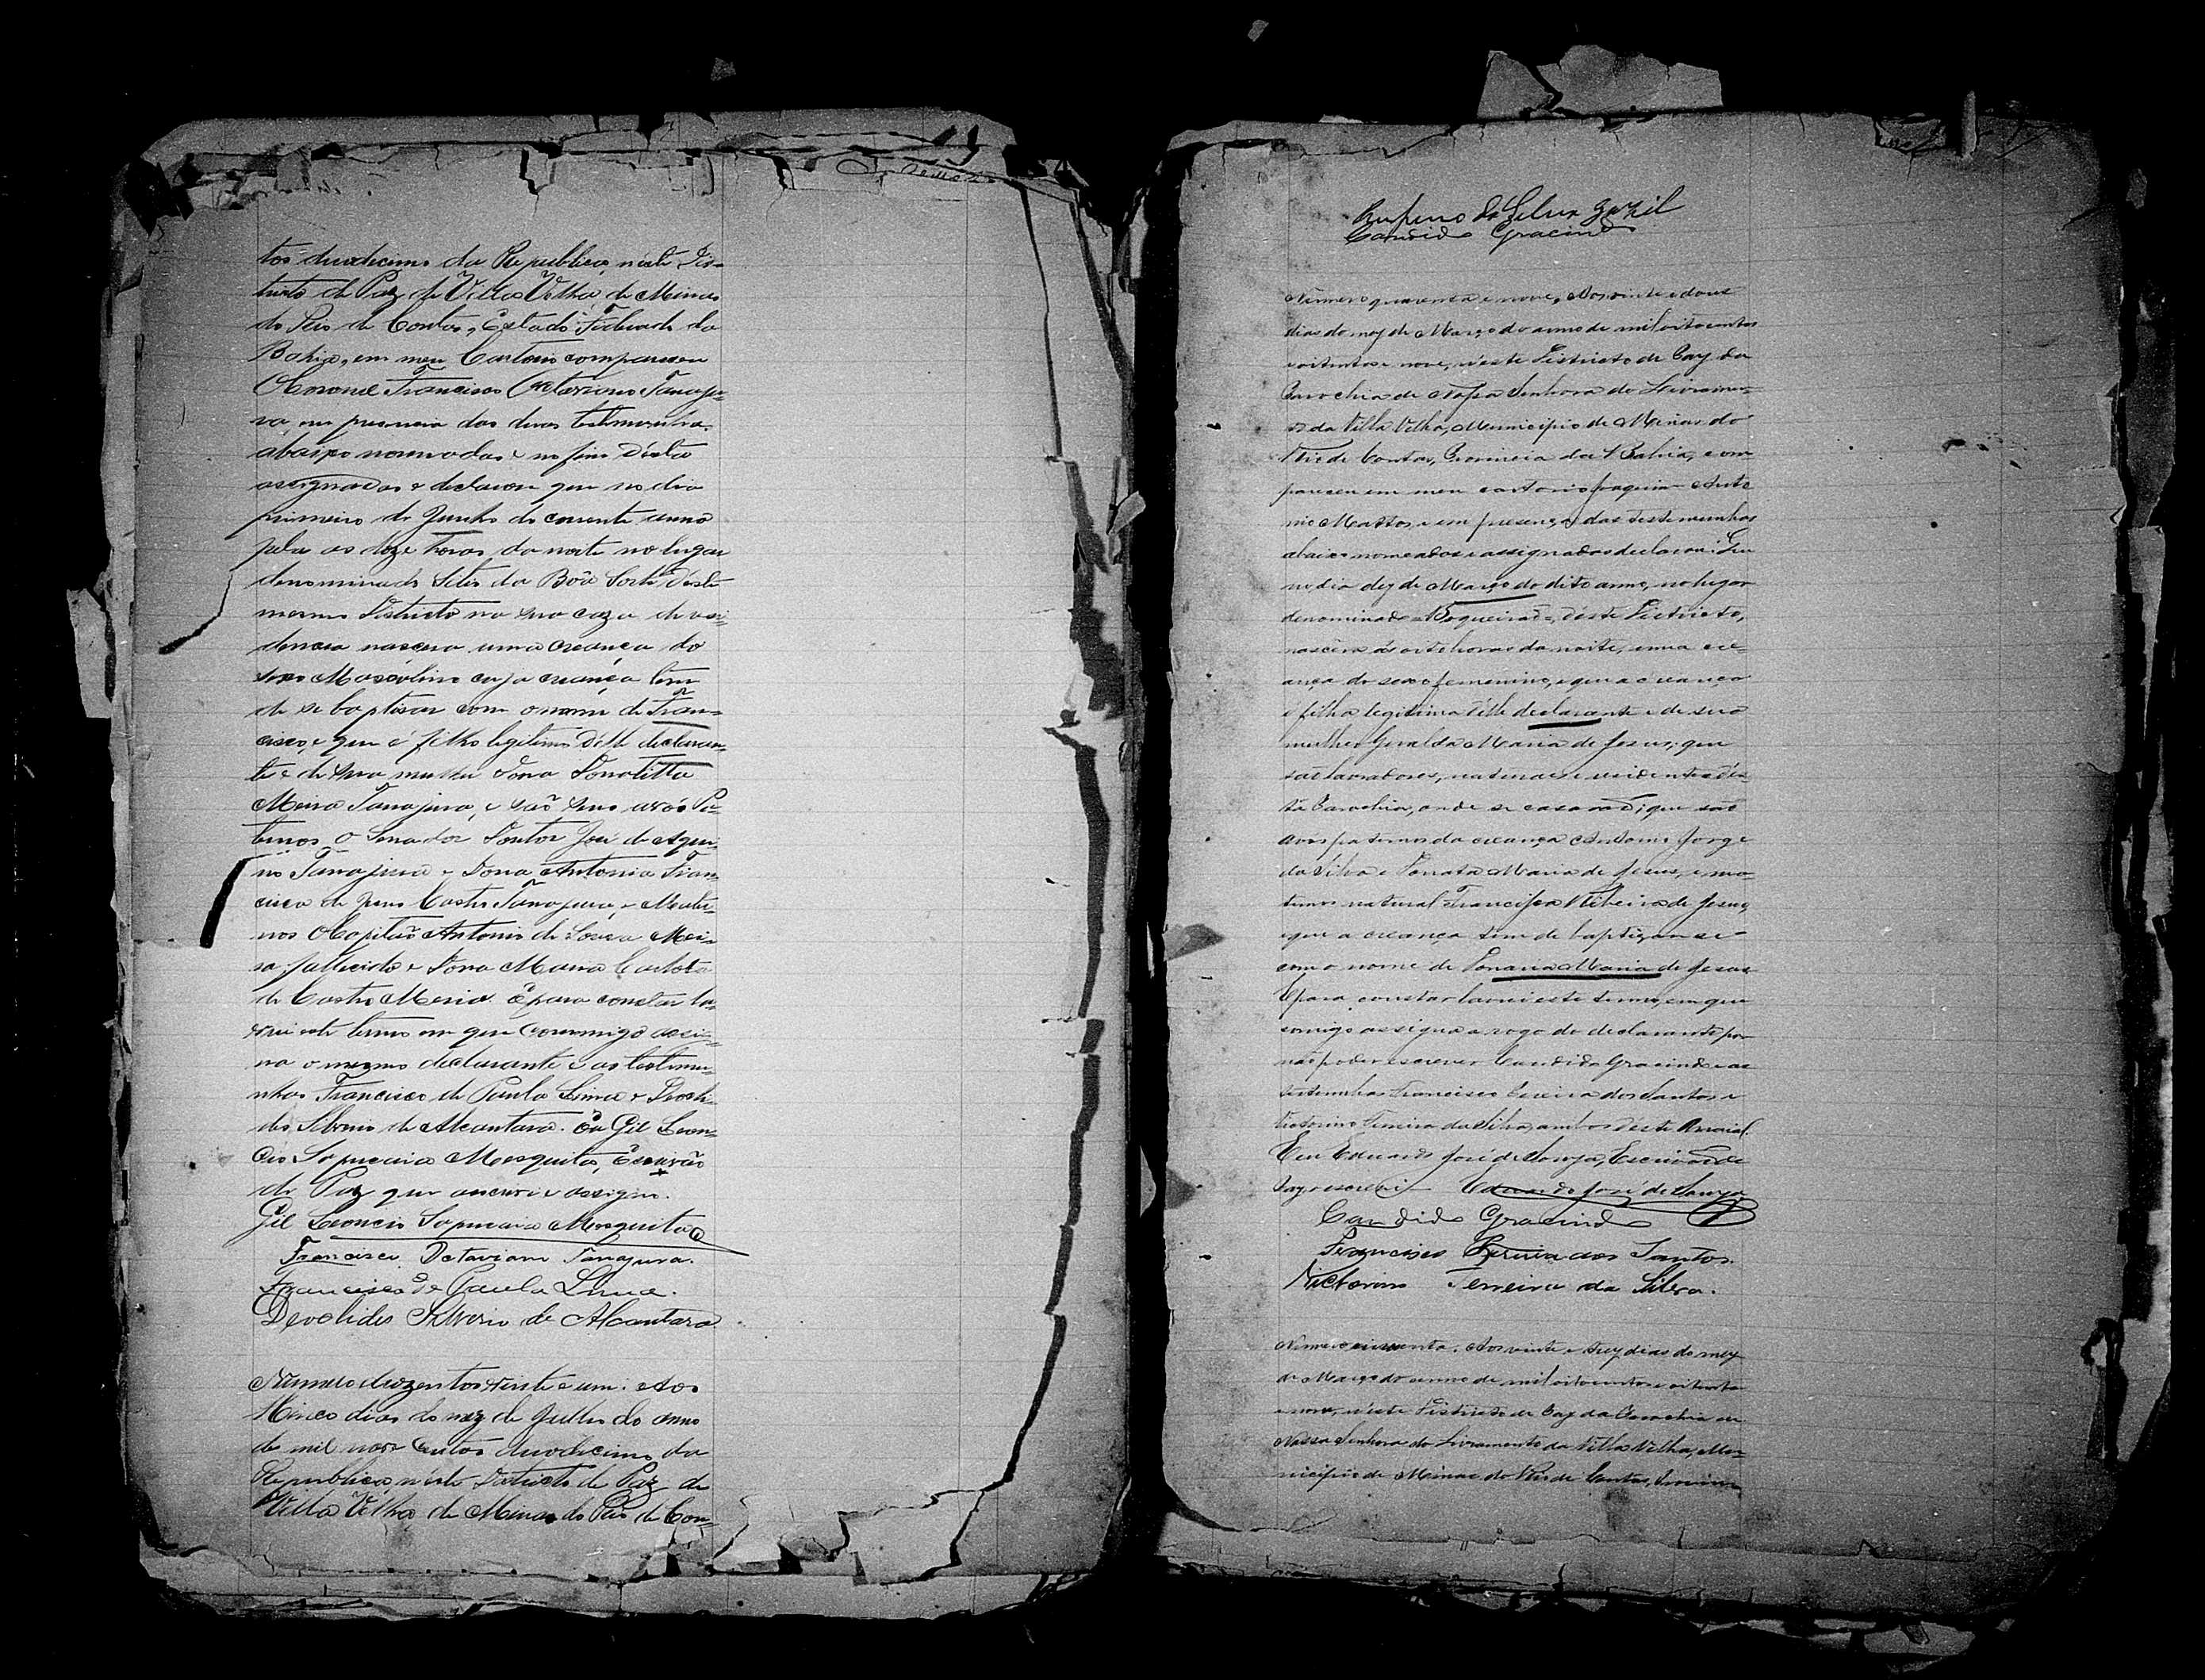 tos duodecimo da Republica, néste Dis-
tricto de Paz de Villa Velha de Minas
do Rio de Contas, Estado Federado da
Bahia, em meu Cartorio compareceu
O Coronel Francisco Octaviano Tanaju-
ra, em presencia das duas testemunhas
abaixo nomeadas e no fim désta
assignadas e declarou que no dia
primeiro de Junho do corrente anno
pelas as doze horas da noite no lugar
denominado Sitio da Bôa Sorte déste
mesmo Districto na sua caza de resi-
dencia nascera uma creança do
sexo Masculino cuja creança tem
de se baptisar com o nome de Fran-
cisco, e que é filho legitimo délle declaran-
te e de sua mulher Dona
Meira Tanajura, e são seus avós Pa-
ternos O Senador Doutor José de Aqui-
no Tanajura e Dona Antonia Fran-
cisca de Castro Tanajura, e Mater-
nos O Capitão Antonio de Souza Mei-
ra fallecido e Dona Maria Carlota
de Castro Meira. E para constar la-
vrei este termo em que commigo assi-
na o mesmo declarante e as testemu-
nhas Francisco de Paula Lima e Deocli-
des Silverio de Alcantara. Eu Gil Leon-
cio Sapucaia Mesquita, Escrivão
de Paz que escrevi e assigno.
Gil Leoncio Sapucaia Mesquita
Francisco Octaviano Tanajura.
Francisco de Paula Lima.
Deoclides Silverio de Alcantara
Numero duzentos vinte e um. Aos
Cinco dias do mez de Julho do anno
de mil nove centos duodecimo da
Republica, néste Districto de Paz de
Villa Velha de Minas do Rio de Con-
Rufino da Silva
Candido Gracindo
Numero quarenta e nove, Aos vinte e dous
dias do mez de Março do anno de mil oitocentos
e oitenta e nove, n'este Districto de Paz da
Parochia de Nossa Senhora do Livramen-
to da Villa Velha, Municipio de Minas do
Rio de Contas, Provincia da Bahia, com
pareceu em meu cartorio Joaquim Anto
nio Mattos, e em presença das testemunhas
abaixo nomeadas e assignadas declarou: Que
no dia dez de Março do dito anno, no lugar
denominado Boqueirão, déste Districto,
nascêra ás oito horas da noite, uma cre-
ança do sexo femenino, e que a creança
é filha legitima délle declarante e de sua
mulher Geralda Maria de Jesus; que
são lavradores, naturaes e residentes dés-
ta Parochia, onde se casarão; que são
avós paternos da creança Antonio Jorge
da Silva e Donata Maria de Jesus, e ma-
ternos natural Francisca Ribeiro de Jesus,
e que a creança tem de baptizar-se
com o nome de Maria de Jesus
E para constar lavrei este termo, em que
comigo assigna a rogo do declarante por
não poder escrever Candido Gracindo e as
testemunhas Francisco Pereira dos Santos e
Victorino Ferreira da Silva, ambos déste Arraial.
Eu Eduardo José de Souza, Escrivão de
Paz, o escrevi Eduardo José de Souza
Candido Gracindo
Francisco Pereira dos Santos.
Victorino Ferreira da Silva.
Numero cincoenta. Aos vinte e trez dias do mez
de Março do anno de mil oitocentos e oitenta
e nove, n'este Districto de Paz da Parochia de
Nossa Senhora do Livramento da Villa Velha, Mu-
nicipio de Minas do Rio de Contas, Provin-